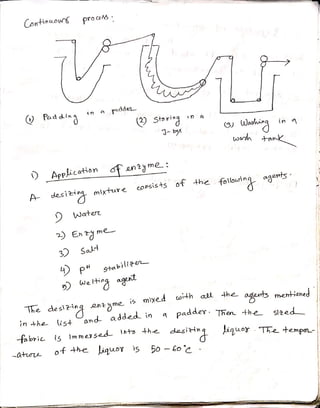 Continuous process:
(1) Padding in a padder
(2) Storing in a
J-box
(3) Washing in a
wash tank
1) Application of enzyme:
A- desizing mixture consists of the following agents.
1) Water
2) Enzyme
3) Salt
4) pH stabilizer
5) Wetting agent
The desizing enzyme is mixed with all the agents mentioned
in the list and added in a padder. Then the sized
fabric is immersed into the desizing liquor. The temper-
ature of the liquor is 50-60°C.